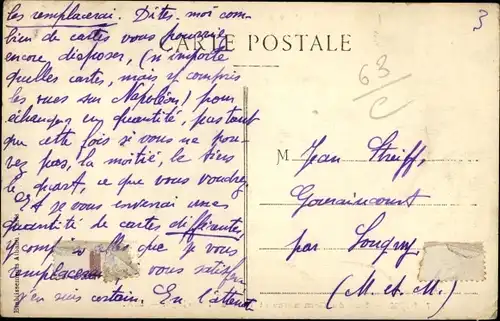 les remplacerai. Dites-moi com-
bien de cartes vous pourriez
encore disposer, (n'importe
quelles cartes, mais y compris
les vues sur Napoléon) pour
échanger en quantité, pas tant
que cette fois si vous ne pou-
vez pas, la moitié, le tiers
le quart, ce que vous voudrez,
Et je vous enverrai une
quantité de cartes différentes,
y compris celle que je vous
remplacerai vous satisfe
j'en suis certain. En l'attente
CARTE POSTALE
63/C
3
M Jean Streiff,
Gouraincourt
par Longwy
(M. et M.)